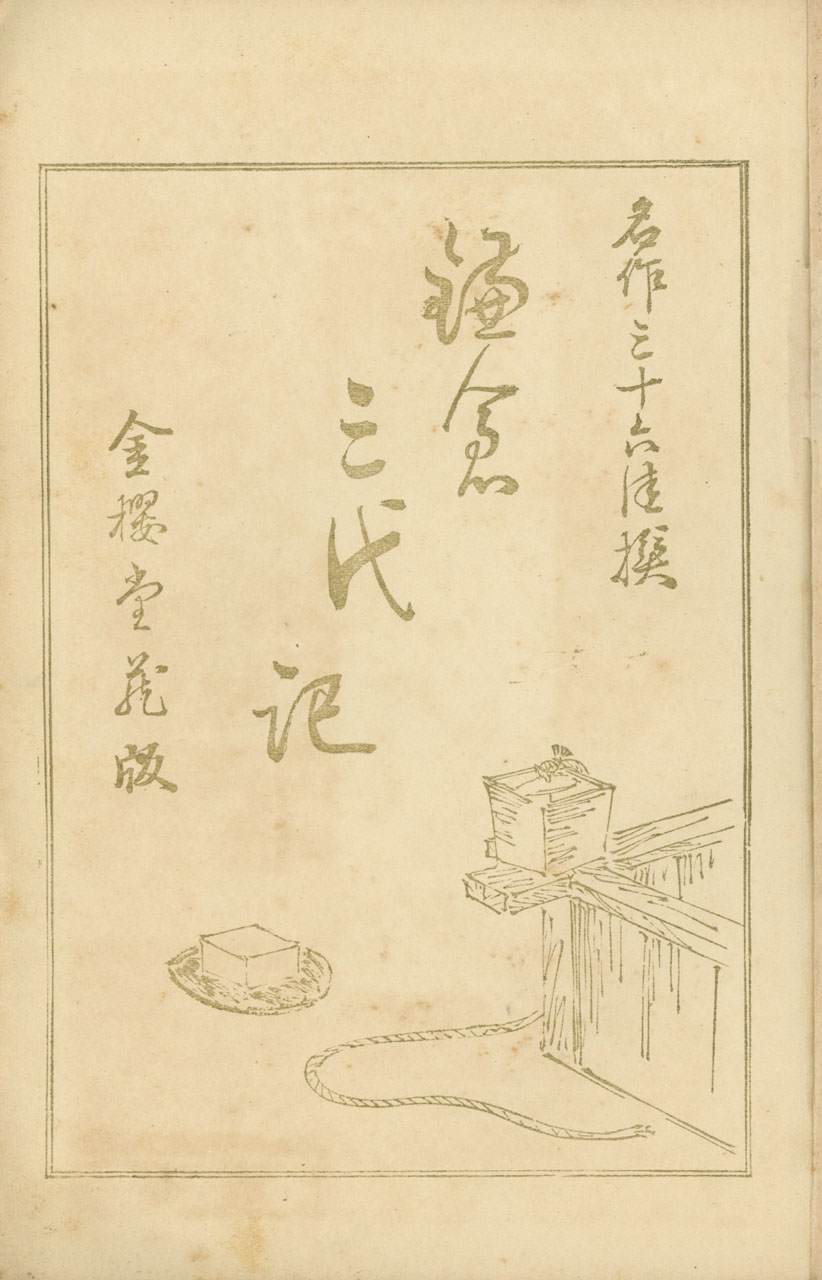 名作三十六佳撰
鎌倉
三代
記
金櫻堂蔵版